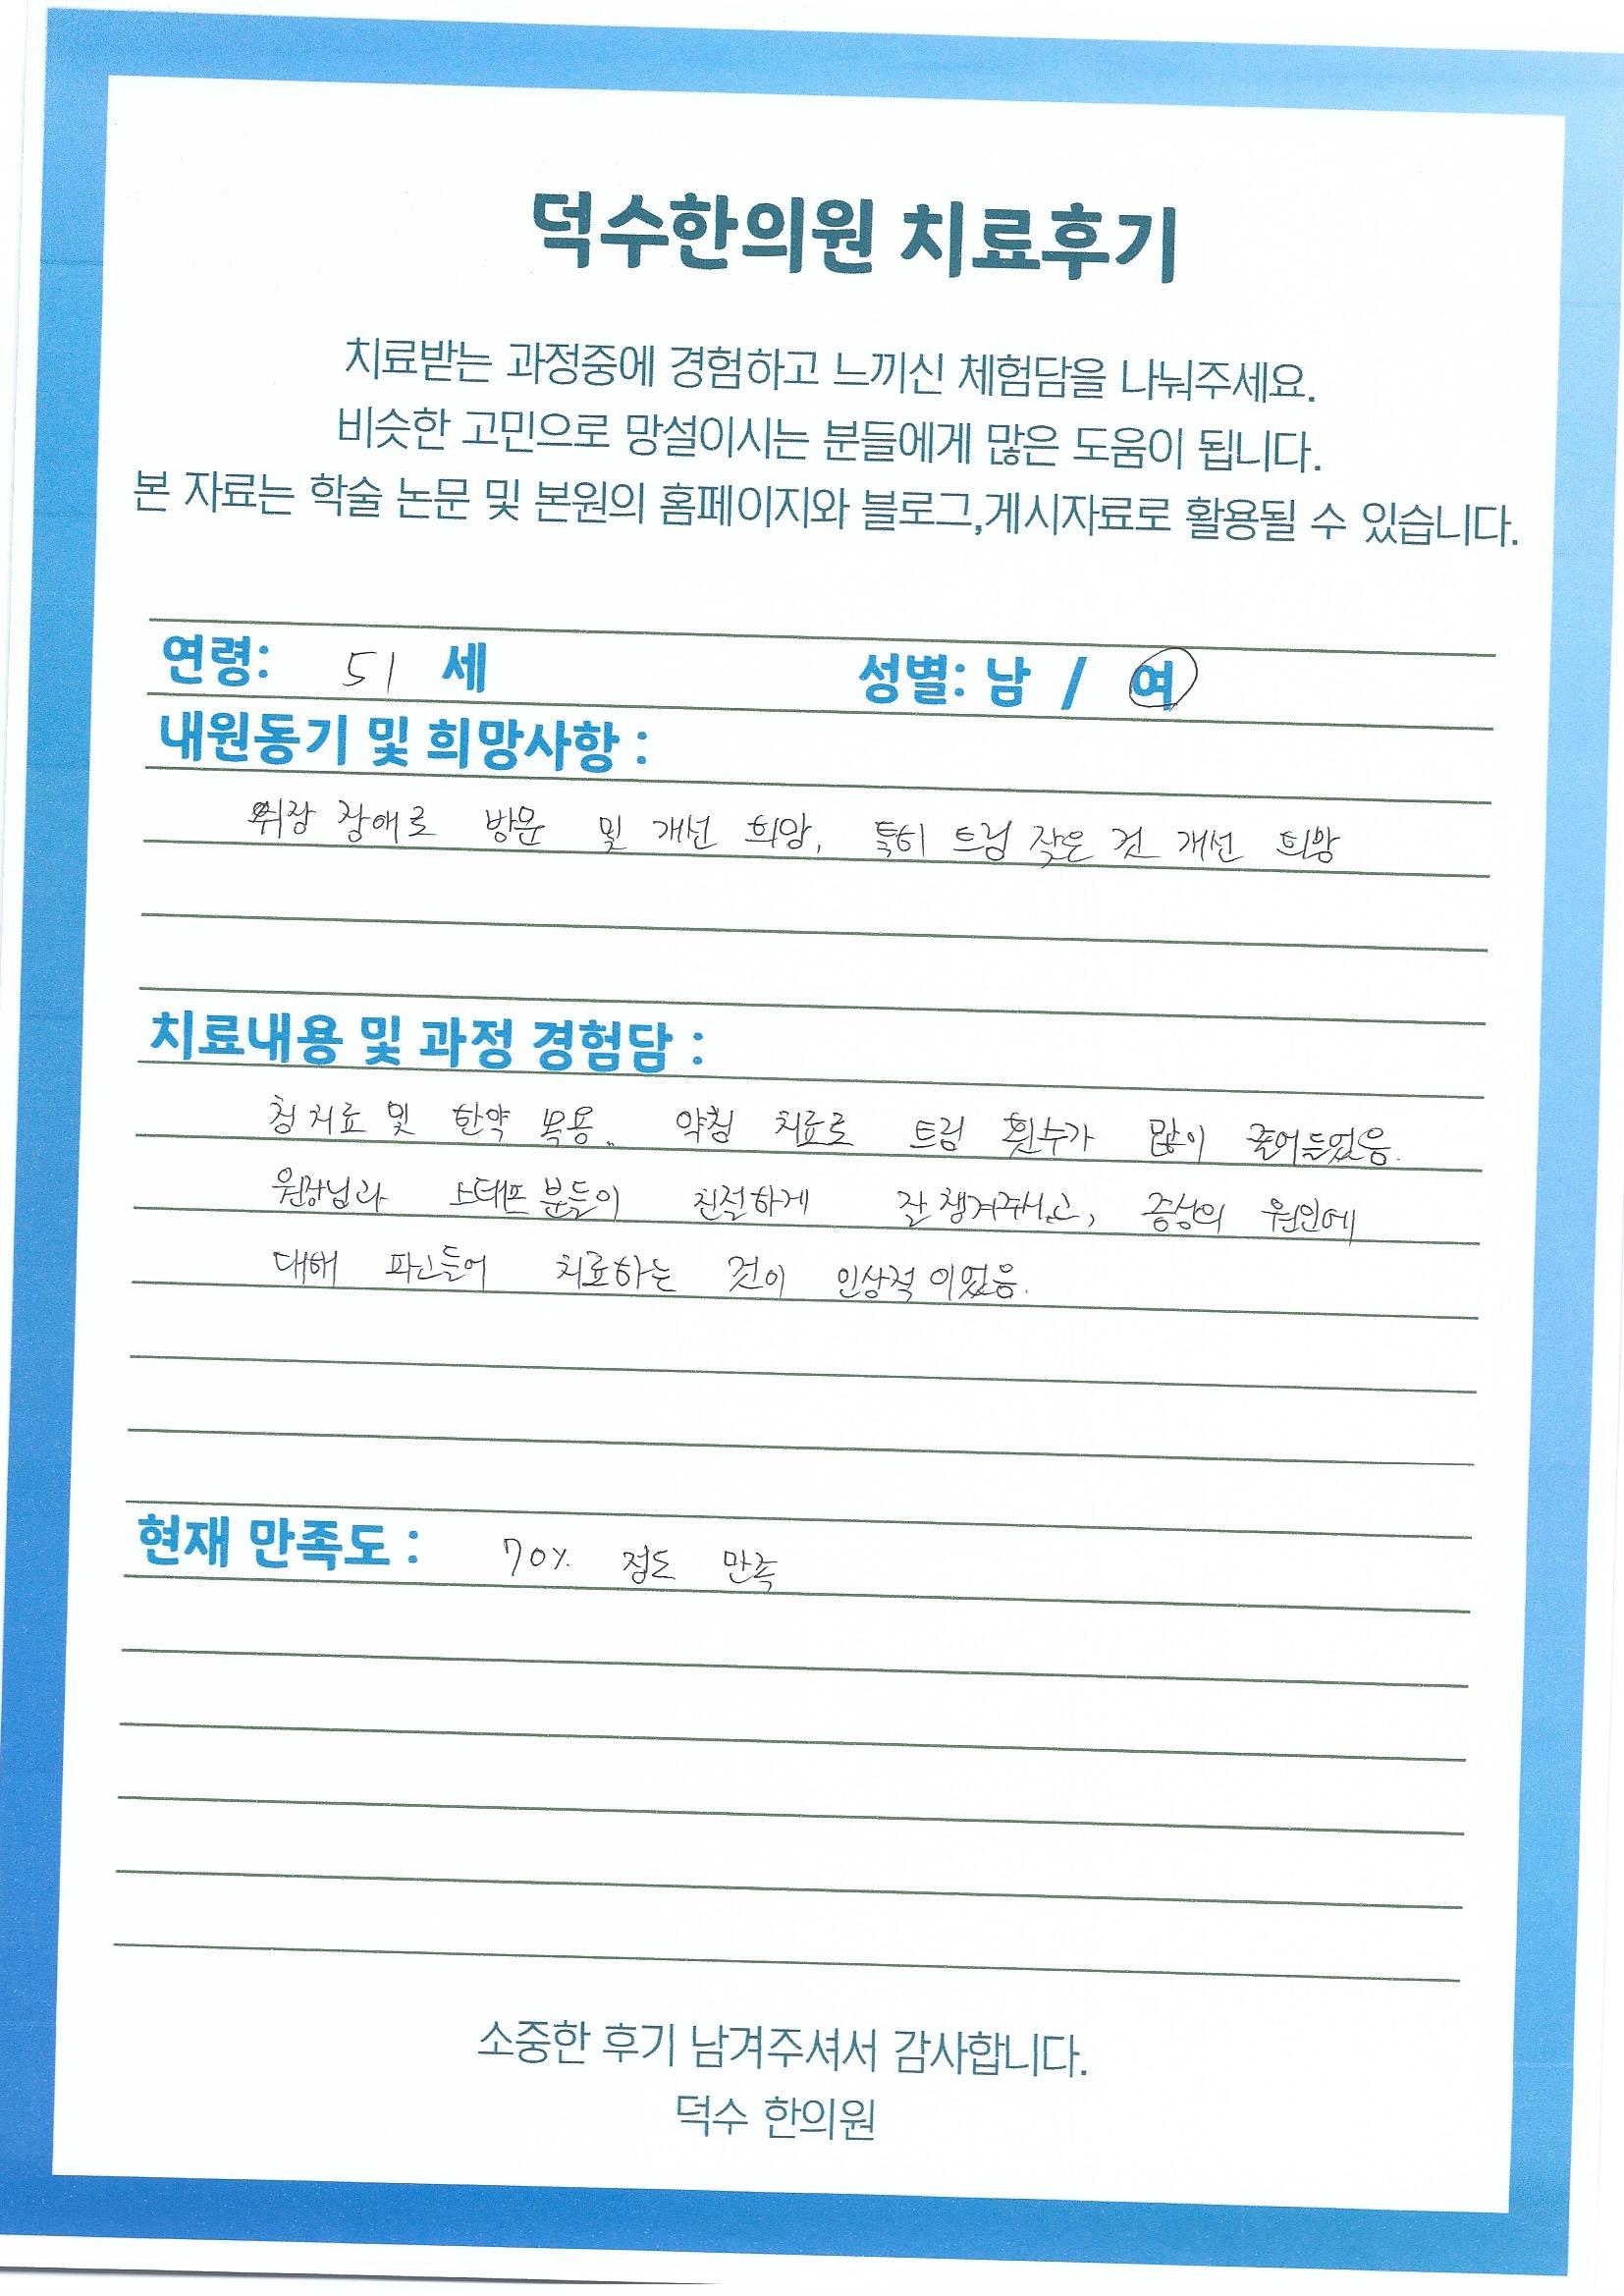 덕수한의원 치료후기
치료받는 과정중에 경험하고 느끼신 체험담을 나눠주세요.
비슷한 고민으로 망설이시는 분들에게 많은 도움이 됩니다.
본 자료는 학술 논문 및 본원의 홈페이지와 블로그,게시자료로 활용될 수 있습니다.
연령: 51 세 성별: 남 / 여
내원동기 및 희망사항 :
위장 장애로 방문 및 개선 희망, 특히 트림 잦은 것 개선 희망
치료내용 및 과정 경험담 :
침치료 및 한약 복용.. 약침 치료로 트림 횟수가 많이 줄어들었음.
원장님과 스태프 분들이 친절하게 잘 챙겨주시고, 증상의 원인에
대해 파고들어 치료하는 것이 인상적이었음.
현재 만족도 : 70% 정도 만족
소중한 후기 남겨주셔서 감사합니다.
덕수 한의원